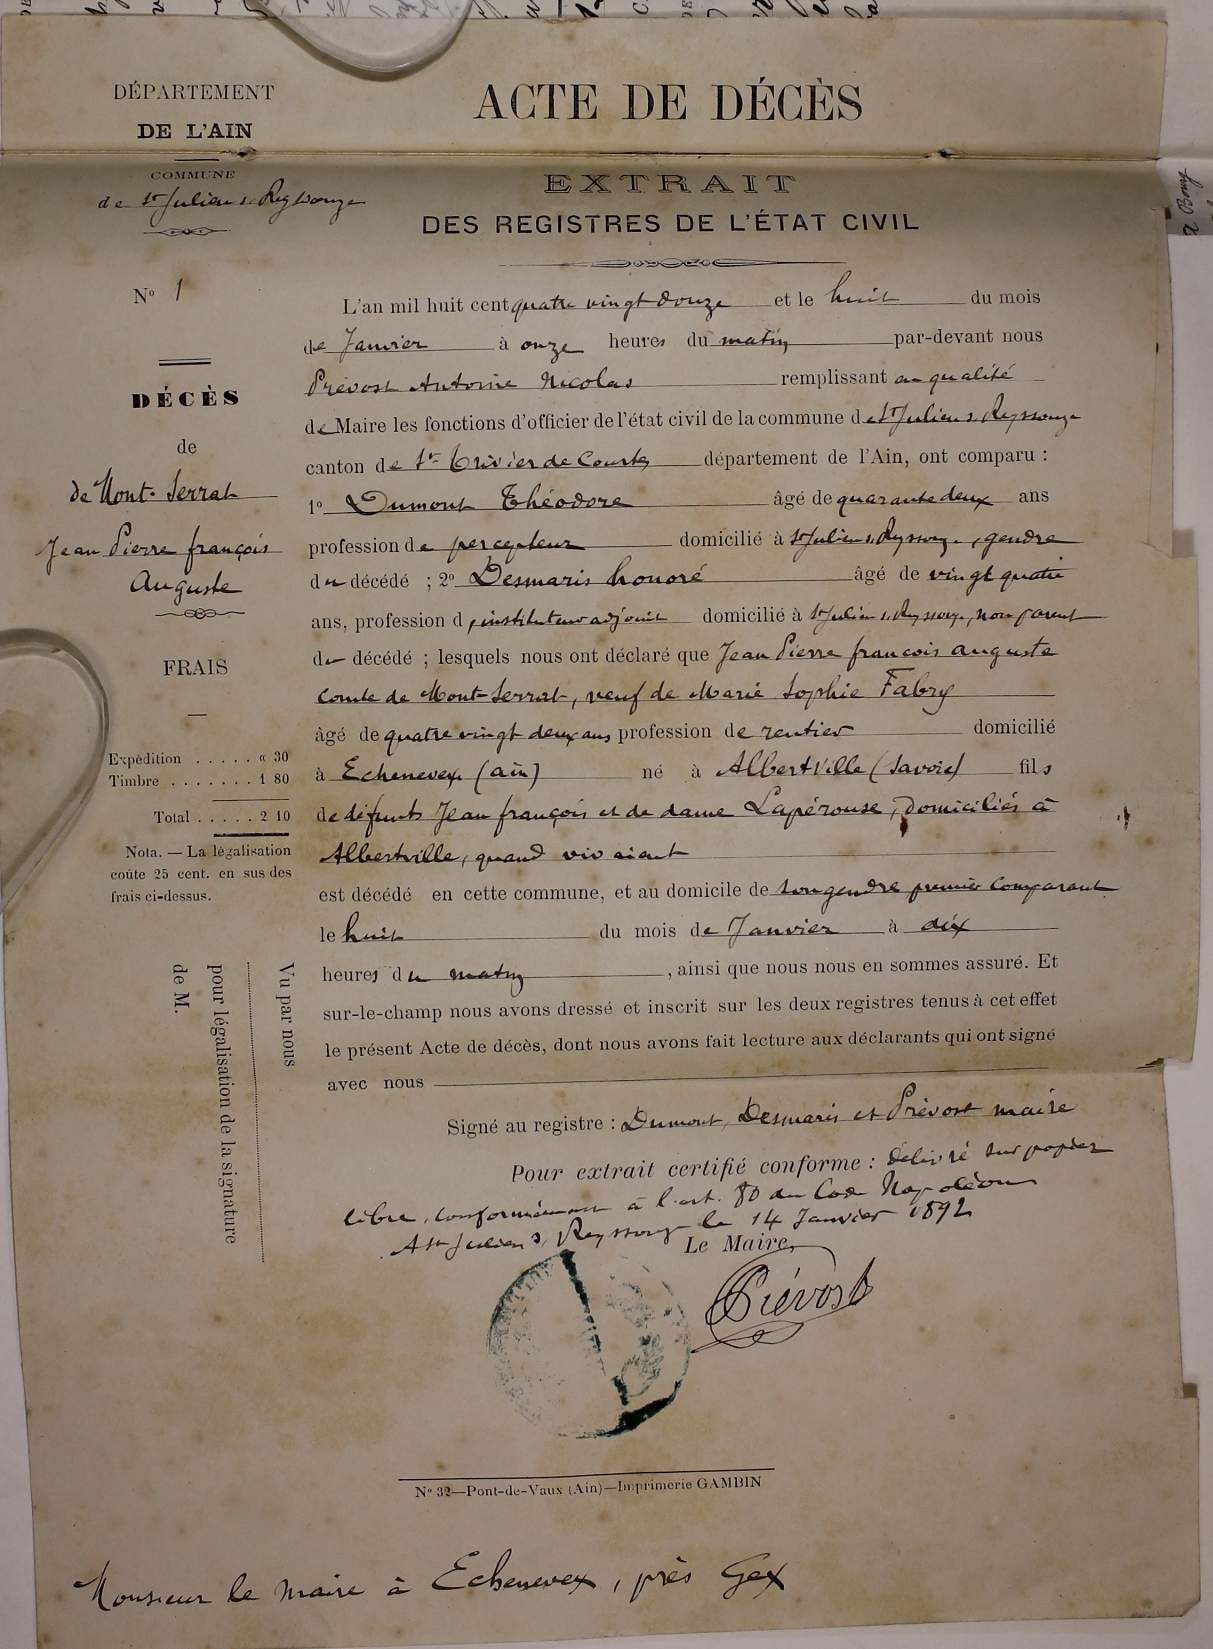 DÉPARTEMENT
DE L'AIN
COMMUNE
de St Julien s. Reyssouze
ACTE DE DÉCÈS
EXTRAIT
DES REGISTRES DE L'ÉTAT CIVIL
No 1
DÉCÈS
de
de Mont-Serrat
Jean Pierre françois
Auguste
FRAIS
Expédition . . . . . « 30
Timbre . . . . . . . 1 80
Total . . . . . 2 10
Nota. — La légalisation
coûte 25 cent. en sus des
frais ci-dessus.
Vu par nous
pour légalisation de la signature
de M.
L'an mil huit cent quatre vingt douze et le huit du mois
de Janvier à onze heures du matin par-devant nous
Prévost Antoine Nicolas remplissant en qualité
de Maire les fonctions d'officier de l'état civil de la commune de St Julien s. Reyssouze
canton de St Trivier de Courtes département de l'Ain, ont comparu :
1o Dumont Théodore âgé de quarante deux ans
profession de percepteur domicilié à St Julien s. Reyssouze, gendre
du décédé ; 2o Desmaris honoré âgé de vingt quatre
ans, profession d'instituteur adjoint domicilié à St Julien s. Reyssouze, non parent
du décédé ; lesquels nous ont déclaré que Jean Pierre francois auguste
comte de Mont-Serrat, veuf de Marie Sophie Fabry
âgé de quatre vingt deux ans profession de rentier domicilié
à Echenevex (ain) né à Albertville (Savoie) fils
de défunts Jean françois et de dame Lapérouse, domiciliés à
Albertville, quand vivaient
est décédé en cette commune, et au domicile de son gendre premier comparant
le huit du mois de Janvier à dix
heures du matin, ainsi que nous nous en sommes assuré. Et
sur-le-champ nous avons dressé et inscrit sur les deux registres tenus à cet effet
le présent Acte de décès, dont nous avons fait lecture aux déclarants qui ont signé
avec nous
Signé au registre : Dumont, Desmaris et Prévost maire
Pour extrait certifié conforme : Délivré sur papier
libre, conformément à l'art. 80 du Code Napoléon
A St Julien s. Reyssouze le 14 Janvier 1892
Le Maire,
Prévost
No 32—Pont-de-Vaux (Ain)—Imprimerie GAMBIN
Monsieur le Maire à Echenevex, près Gex